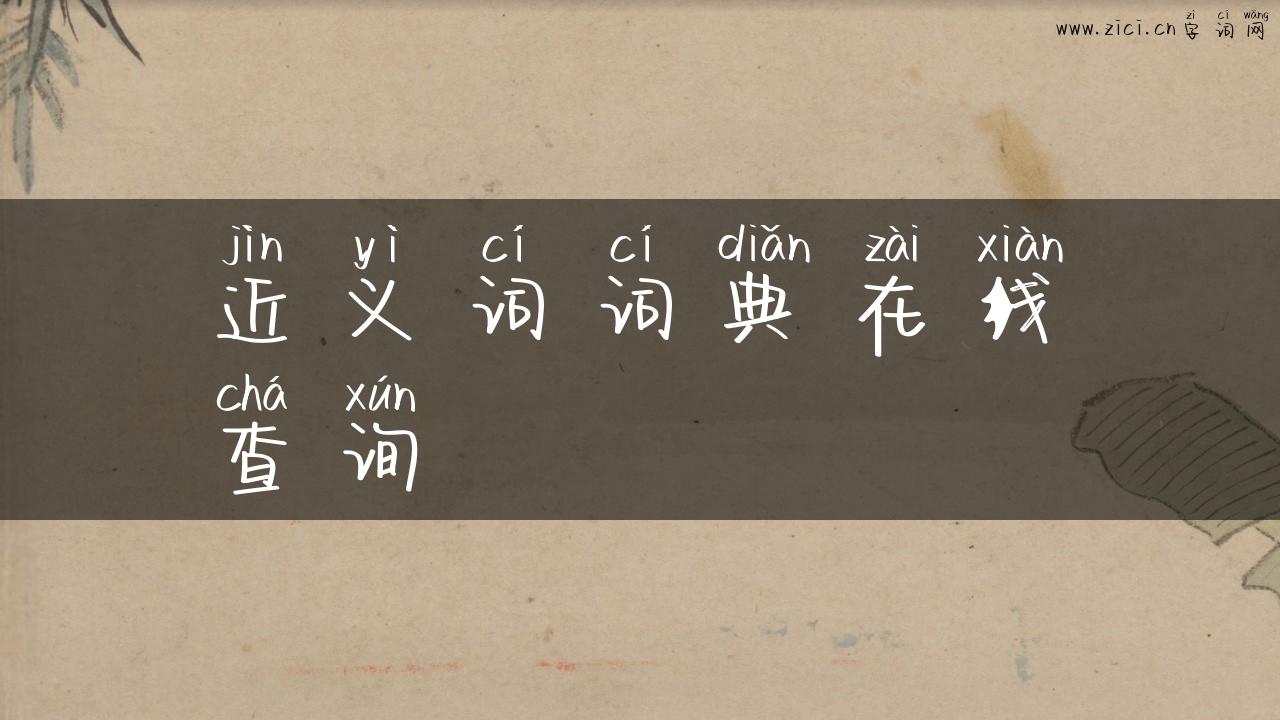 zì cí wǎng
www.zici.cn 字词网
jìn yì cí cí diǎn zài xiàn
近义词词典在线
chá xún
查询